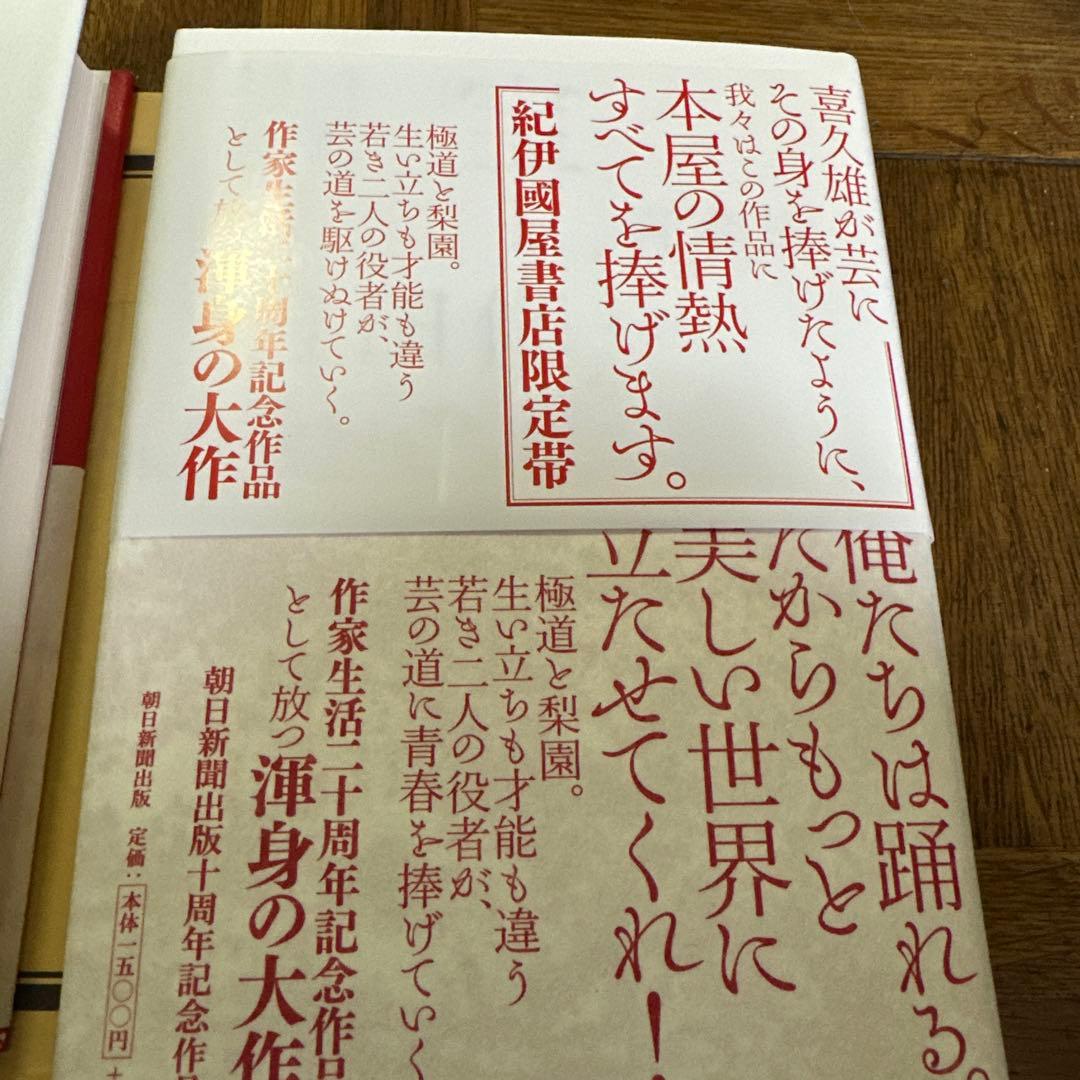 喜久雄が芸に
その身を捧げたように、
我々はこの作品に
本屋の情熱
すべてを捧げます。
紀伊國屋書店限定帯
極道と梨園。
生い立ちも才能も違う
若き二人の役者が、
芸の道を駆けぬけていく。
作家生活二十周年記念作品
として放つ渾身の大作
俺たちは踊れる。
だからもっと
美しい世界に
立たせてくれ!
極道と梨園。
生い立ちも才能も違う
若き二人の役者が、
芸の道に青春を捧げていく
作家生活二十周年記念作品
として放つ渾身の大作
朝日新聞出版十周年記念作品
朝日新聞出版 定価:本体一五〇〇円+